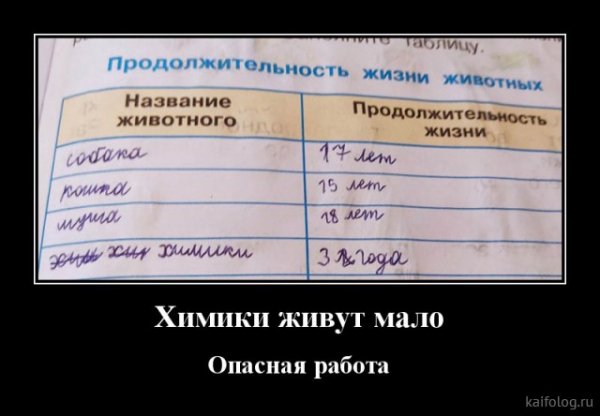 таблицу.
Продолжительность жизни животных
Название животного
Продолжительность жизни
собака 17 лет
кошка 15 лет
муша 18 лет
химики 3 года
Химики живут мало
Опасная работа
kaifolog.ru